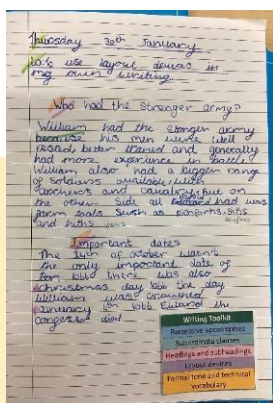 Thursday 30th January
Lo: to use layout devices in
my own writing.
Who had the stronger army?
William had the stonger army
because his men were well
better trained and generally
had more experience in battle.
William also had a bigger range
of Soldiers available, with
archers and cavalry. But on
the other side all had was
farm tools such as
and
Important dates
The 14th of october wasn't
the only important date of
there was also
christmas day 1066 the day
William was crowned
January 5th 1066 Edward the
died
Writing Toolkit
Possessive apostrophes
Subordinate clauses
Headings and subheadings
Layout devices
Formal tone and technical
vocabulary